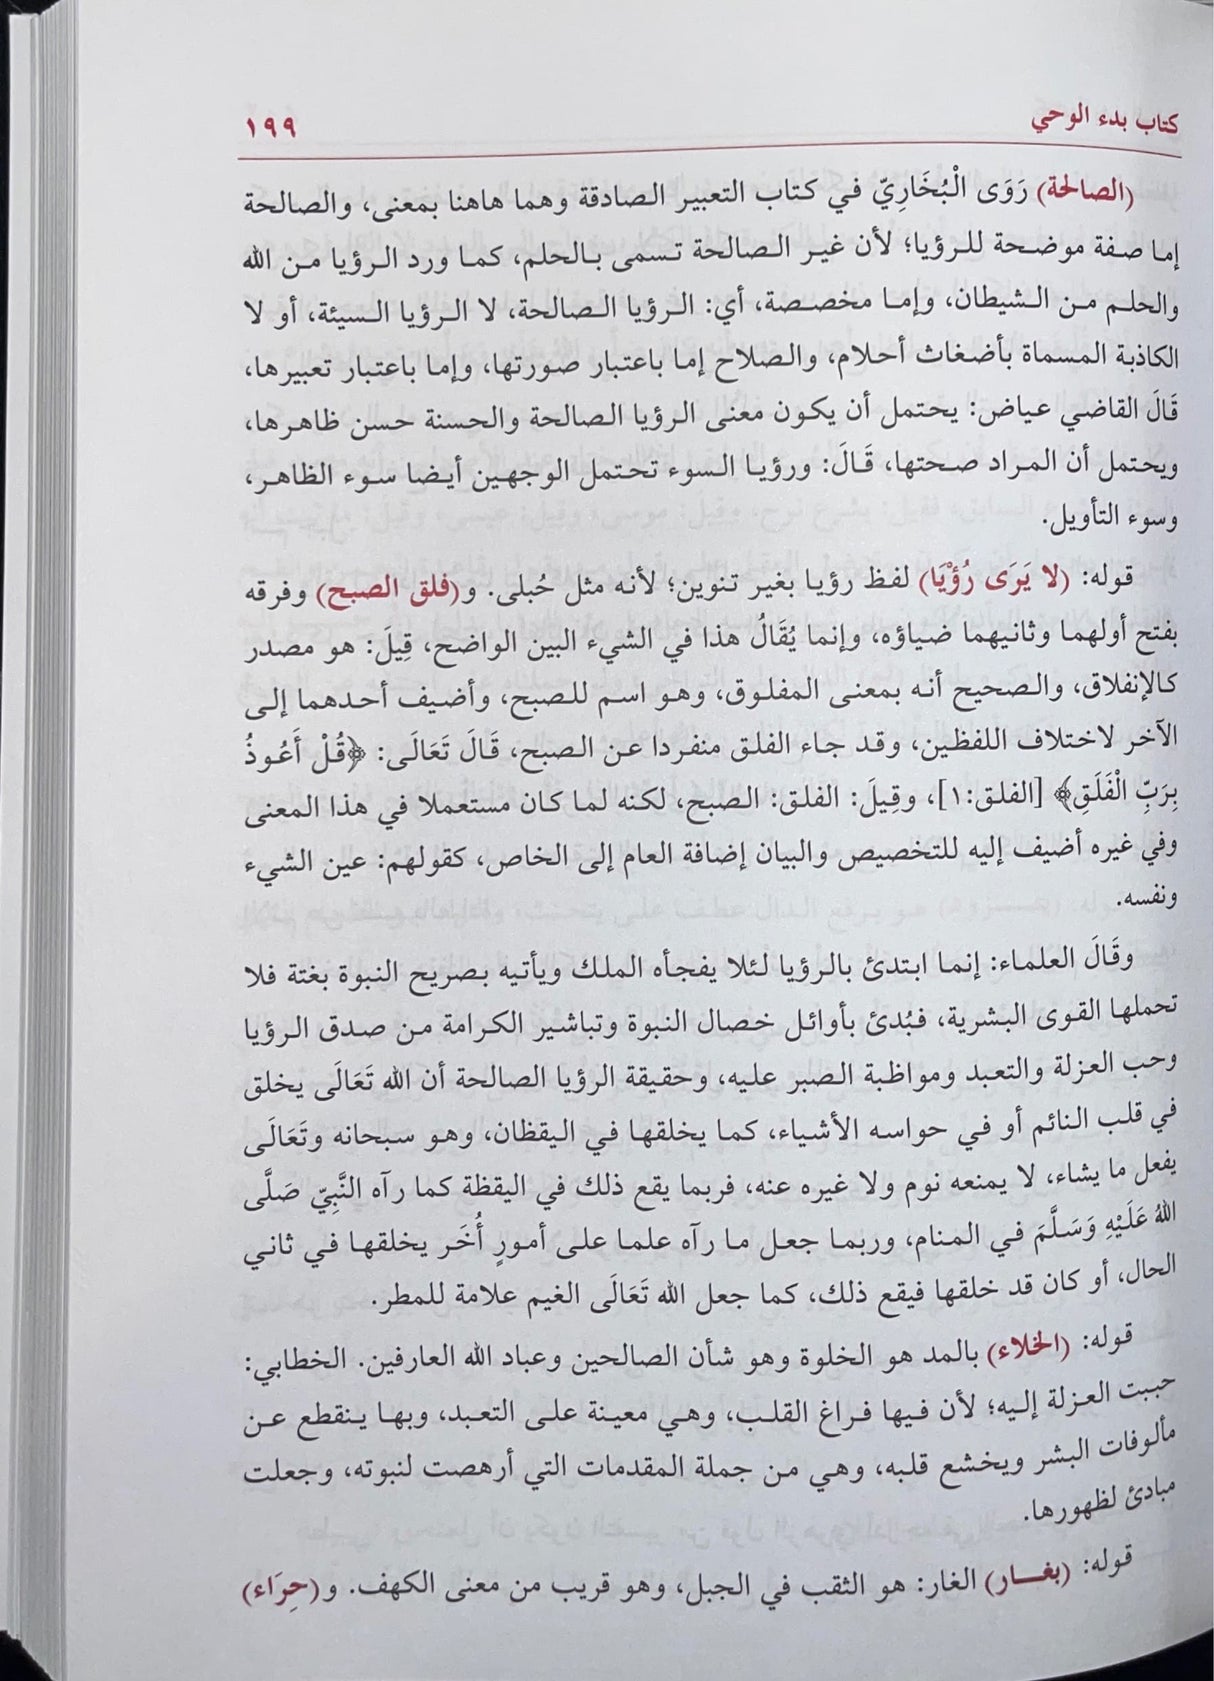 كتاب بدء الوحي ١٩٩
(الصالحة) رَوَى الْبُخَارِيّ في كتاب التعبير الصادقة وهما هاهنا بمعنى، والصالحة
إما صفة موضحة للرؤيا؛ لأن غير الصالحة تسمى بالحلم، كما ورد الرؤيا من الله
والحلم من الشيطان، وإما مخصصة، أي: الرؤيا الصالحة، لا الرؤيا السيئة، أو لا
الكاذبة المسماة بأضغاث أحلام، والصلاح إما باعتبار صورتها، وإما باعتبار تعبيرها،
قَالَ القاضي عياض: يحتمل أن يكون معنى الرؤيا الصالحة والحسنة حسن ظاهرها،
ويحتمل أن المراد صحتها، قَالَ: ورؤيا السوء تحتمل الوجهين أيضا سوء الظاهر،
وسوء التأويل.
قوله: (لا يَرَى رُؤْيَا) لفظ رؤيا بغير تنوين؛ لأنه مثل حُبلى. و(فلق الصبح) وفرقه
بفتح أولهما وثانيهما ضياؤه، وإنما يُقَالُ هذا في الشيء البين الواضح، قِيلَ: هو مصدر
كالإنفلاق، والصحيح أنه بمعنى المفلوق، وهو اسم للصبح، وأضيف أحدهما إلى
الآخر لاختلاف اللفظين، وقد جاء الفلق منفردا عن الصبح، قَالَ تَعَالَى: ﴿قُلْ أَعُوذُ
بِرَبِّ الْفَلَقِ﴾ [الفلق:١]، وقِيلَ: الفلق: الصبح، لكنه لما كان مستعملا في هذا المعنى
وفي غيره أضيف إليه للتخصيص والبيان إضافة العام إلى الخاص، كقولهم: عين الشيء
ونفسه.
وقَالَ العلماء: إنما ابتدئ بالرؤيا لئلا يفجأه الملك ويأتيه بصريح النبوة بغتة فلا
تحملها القوى البشرية، فبُدئ بأوائل خصال النبوة وتباشير الكرامة من صدق الرؤيا
وحب العزلة والتعبد ومواظبة الصبر عليه، وحقيقة الرؤيا الصالحة أن الله تَعَالَى يخلق
في قلب النائم أو في حواسه الأشياء، كما يخلقها في اليقظان، وهو سبحانه وتَعَالَى
يفعل ما يشاء، لا يمنعه نوم ولا غيره عنه، فربما يقع ذلك في اليقظة كما رآه النَّبِيّ صَلَّى
اللهُ عَلَيْهِ وَسَلَّمَ في المنام، وربما جعل ما رآه علما على أمورٍ أُخَر يخلقها في ثاني
الحال، أو كان قد خلقها فيقع ذلك، كما جعل الله تَعَالَى الغيم علامة للمطر.
قوله: (الخلاء) بالمد هو الخلوة وهو شأن الصالحين وعباد الله العارفين. الخطابي:
حببت العزلة إليه؛ لأن فيها فراغ القلب، وهي معينة على التعبد، وبها ينقطع عن
مألوفات البشر ويخشع قلبه، وهي من جملة المقدمات التي أرهصت لنبوته، وجعلت
مبادئ لظهورها.
قوله: (بغار) الغار: هو الثقب في الجبل، وهو قريب من معنى الكهف. و(حِرَاء)